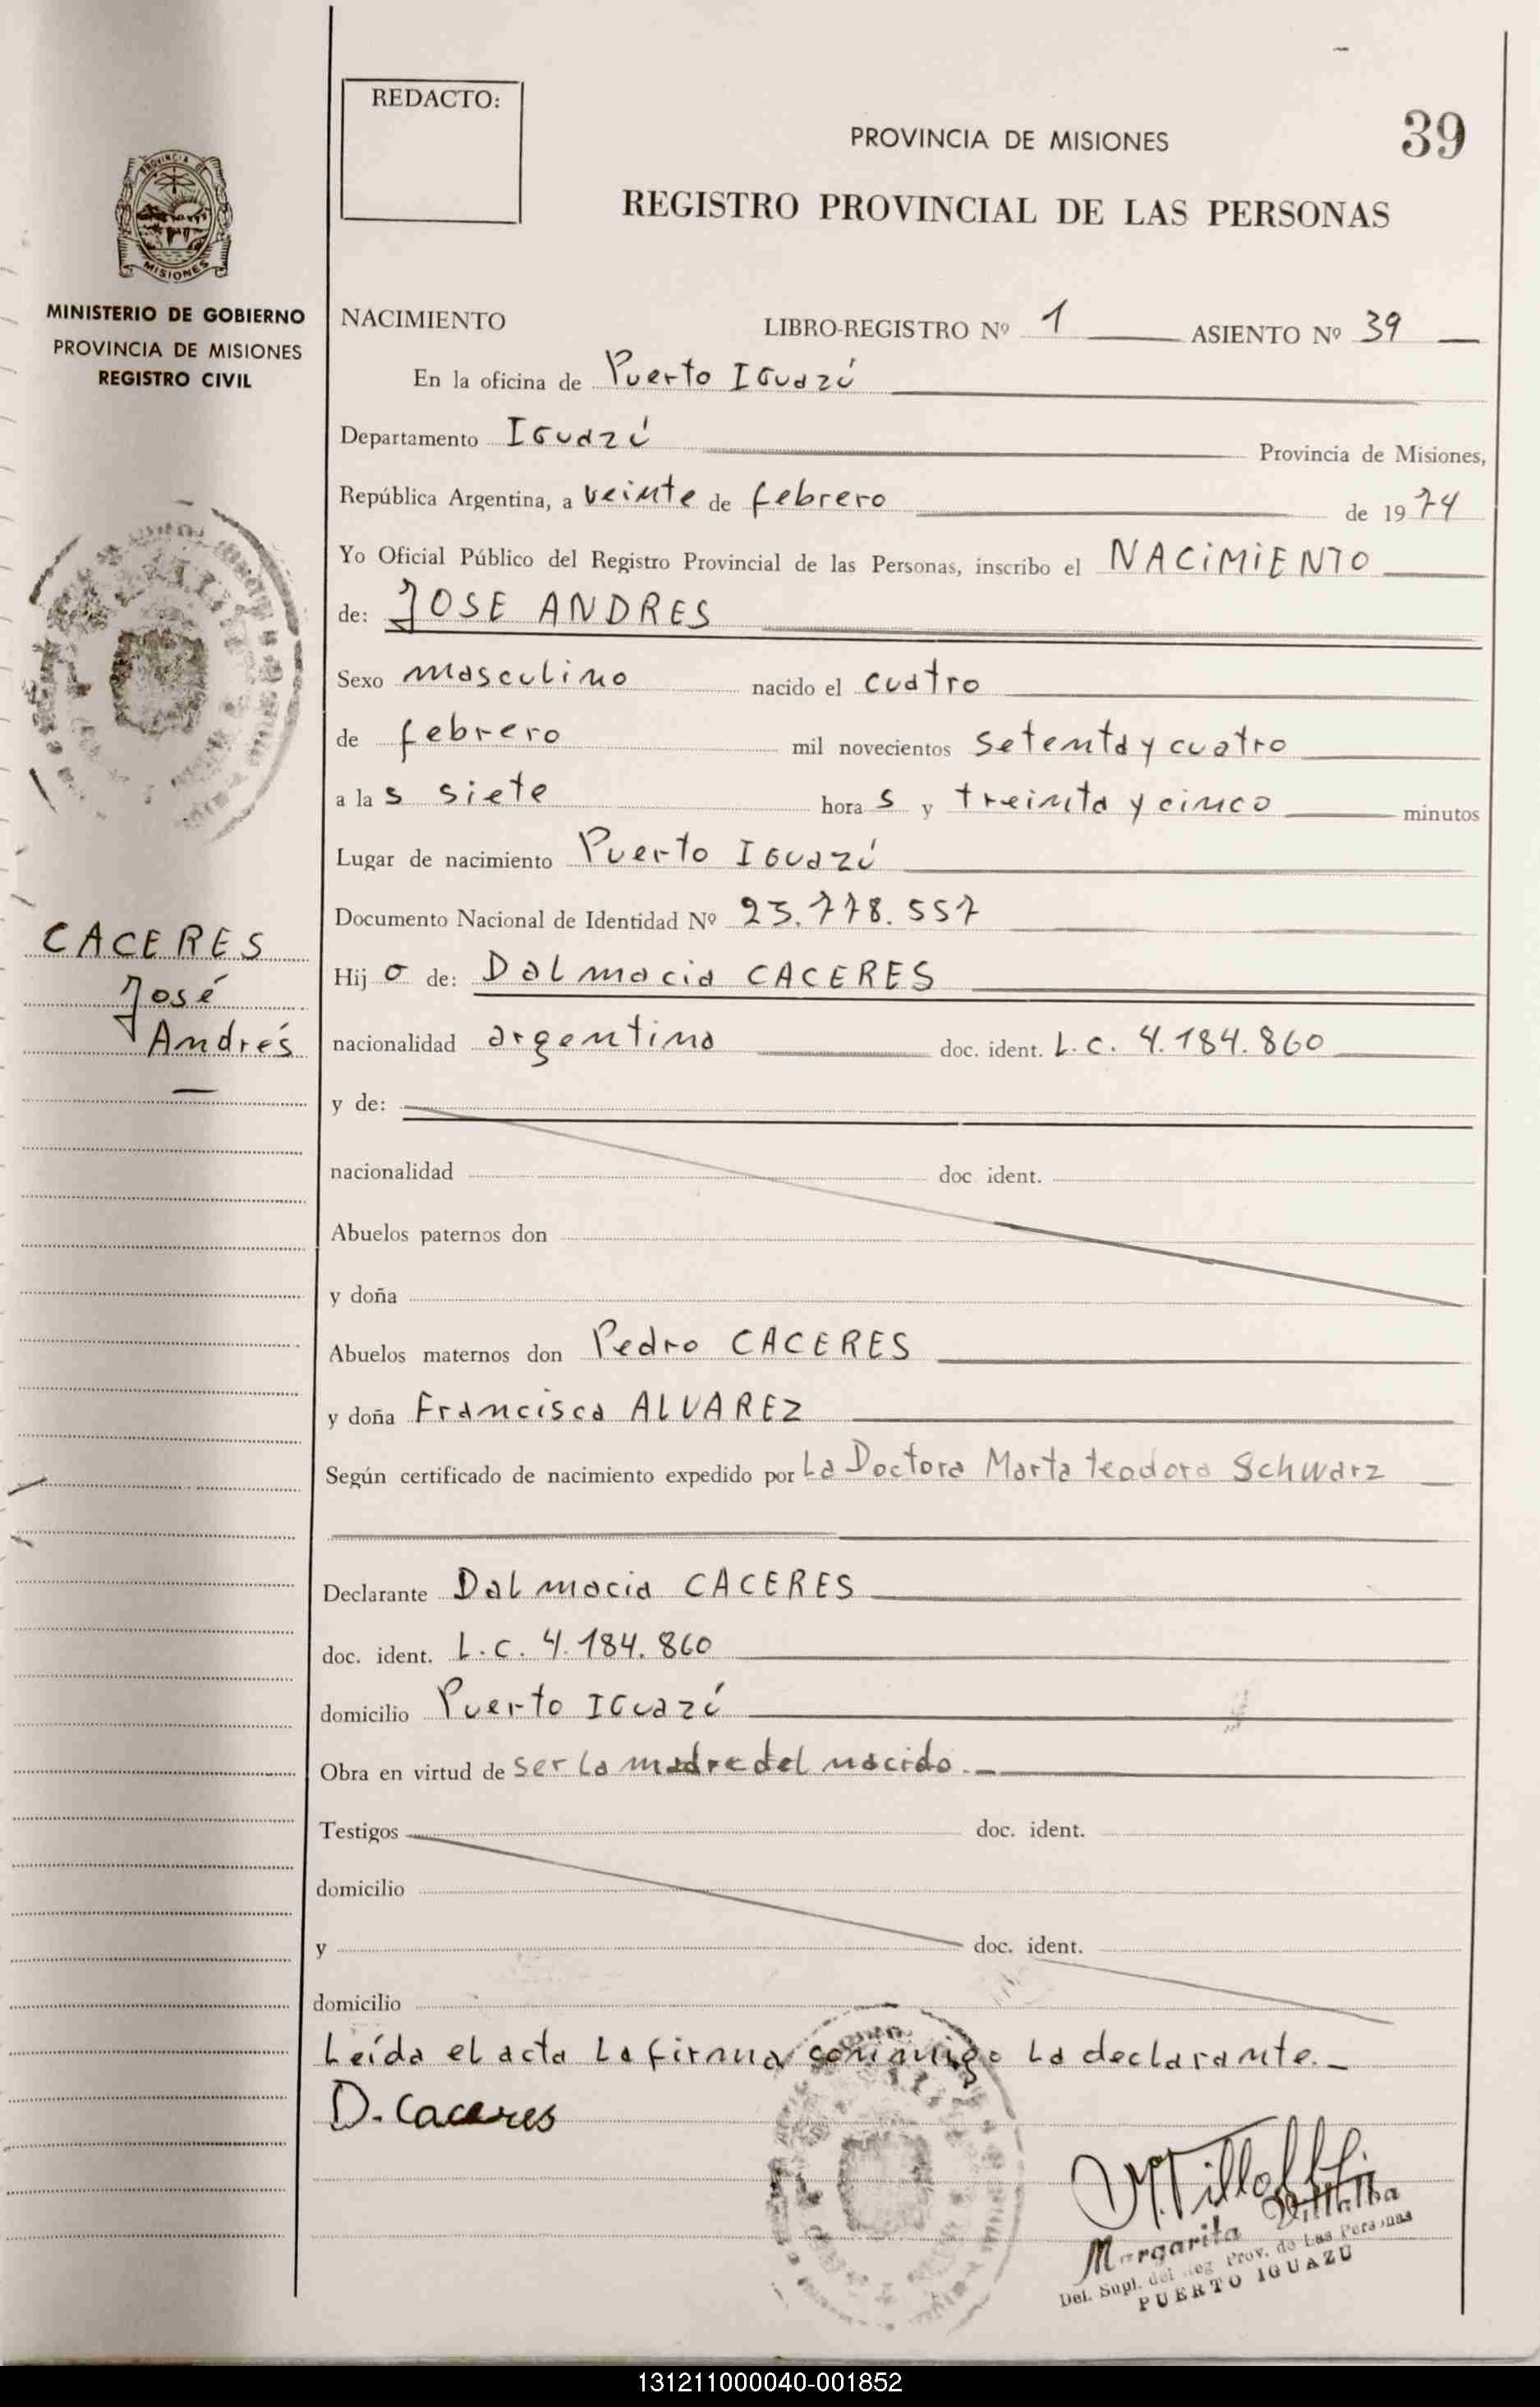 REDACTO:
39
PROVINCIA DE MISIONES
REGISTRO PROVINCIAL DE LAS PERSONAS
PROVINCIA DE
MISIONES
MINISTERIO DE GOBIERNO
PROVINCIA DE MISIONES
REGISTRO CIVIL
CACERES
José
Andrés
NACIMIENTO LIBRO-REGISTRO Nº 1 ASIENTO Nº 39
En la oficina de Puerto IGuazú
Departamento IGuazú Provincia de Misiones,
República Argentina, a veinte de febrero de 1974
Yo Oficial Público del Registro Provincial de las Personas, inscribo el NACiMiENTO
de: JOSE ANDRES
Sexo masculino nacido el cuatro
de febrero mil novecientos setenta y cuatro
a las siete horas y treinta y cinco minutos
Lugar de nacimiento Puerto IGuazú
Documento Nacional de Identidad Nº 23.778.557
Hijo de: Dalmacia CACERES
nacionalidad argentina doc. ident. L.C. 4.184.860
y de:
nacionalidad doc. ident.
Abuelos paternos don
y doña
Abuelos maternos don Pedro CACERES
y doña Francisca ALVAREZ
Según certificado de nacimiento expedido por La Doctora Marta teodora Schwarz
Declarante Dalmacia CACERES
doc. ident. L.C. 4.184.860
domicilio Puerto IGuazú
Obra en virtud de ser la madre del nacido.-
Testigos doc. ident.
domicilio
y doc. ident.
domicilio
Leída el acta La firma conmigo La declarante.-
D. Caceres
Margarita Villalba
Del. Supl. del Reg. Prov. de Las Personas
PUERTO IGUAZÚ
131211000040-001852